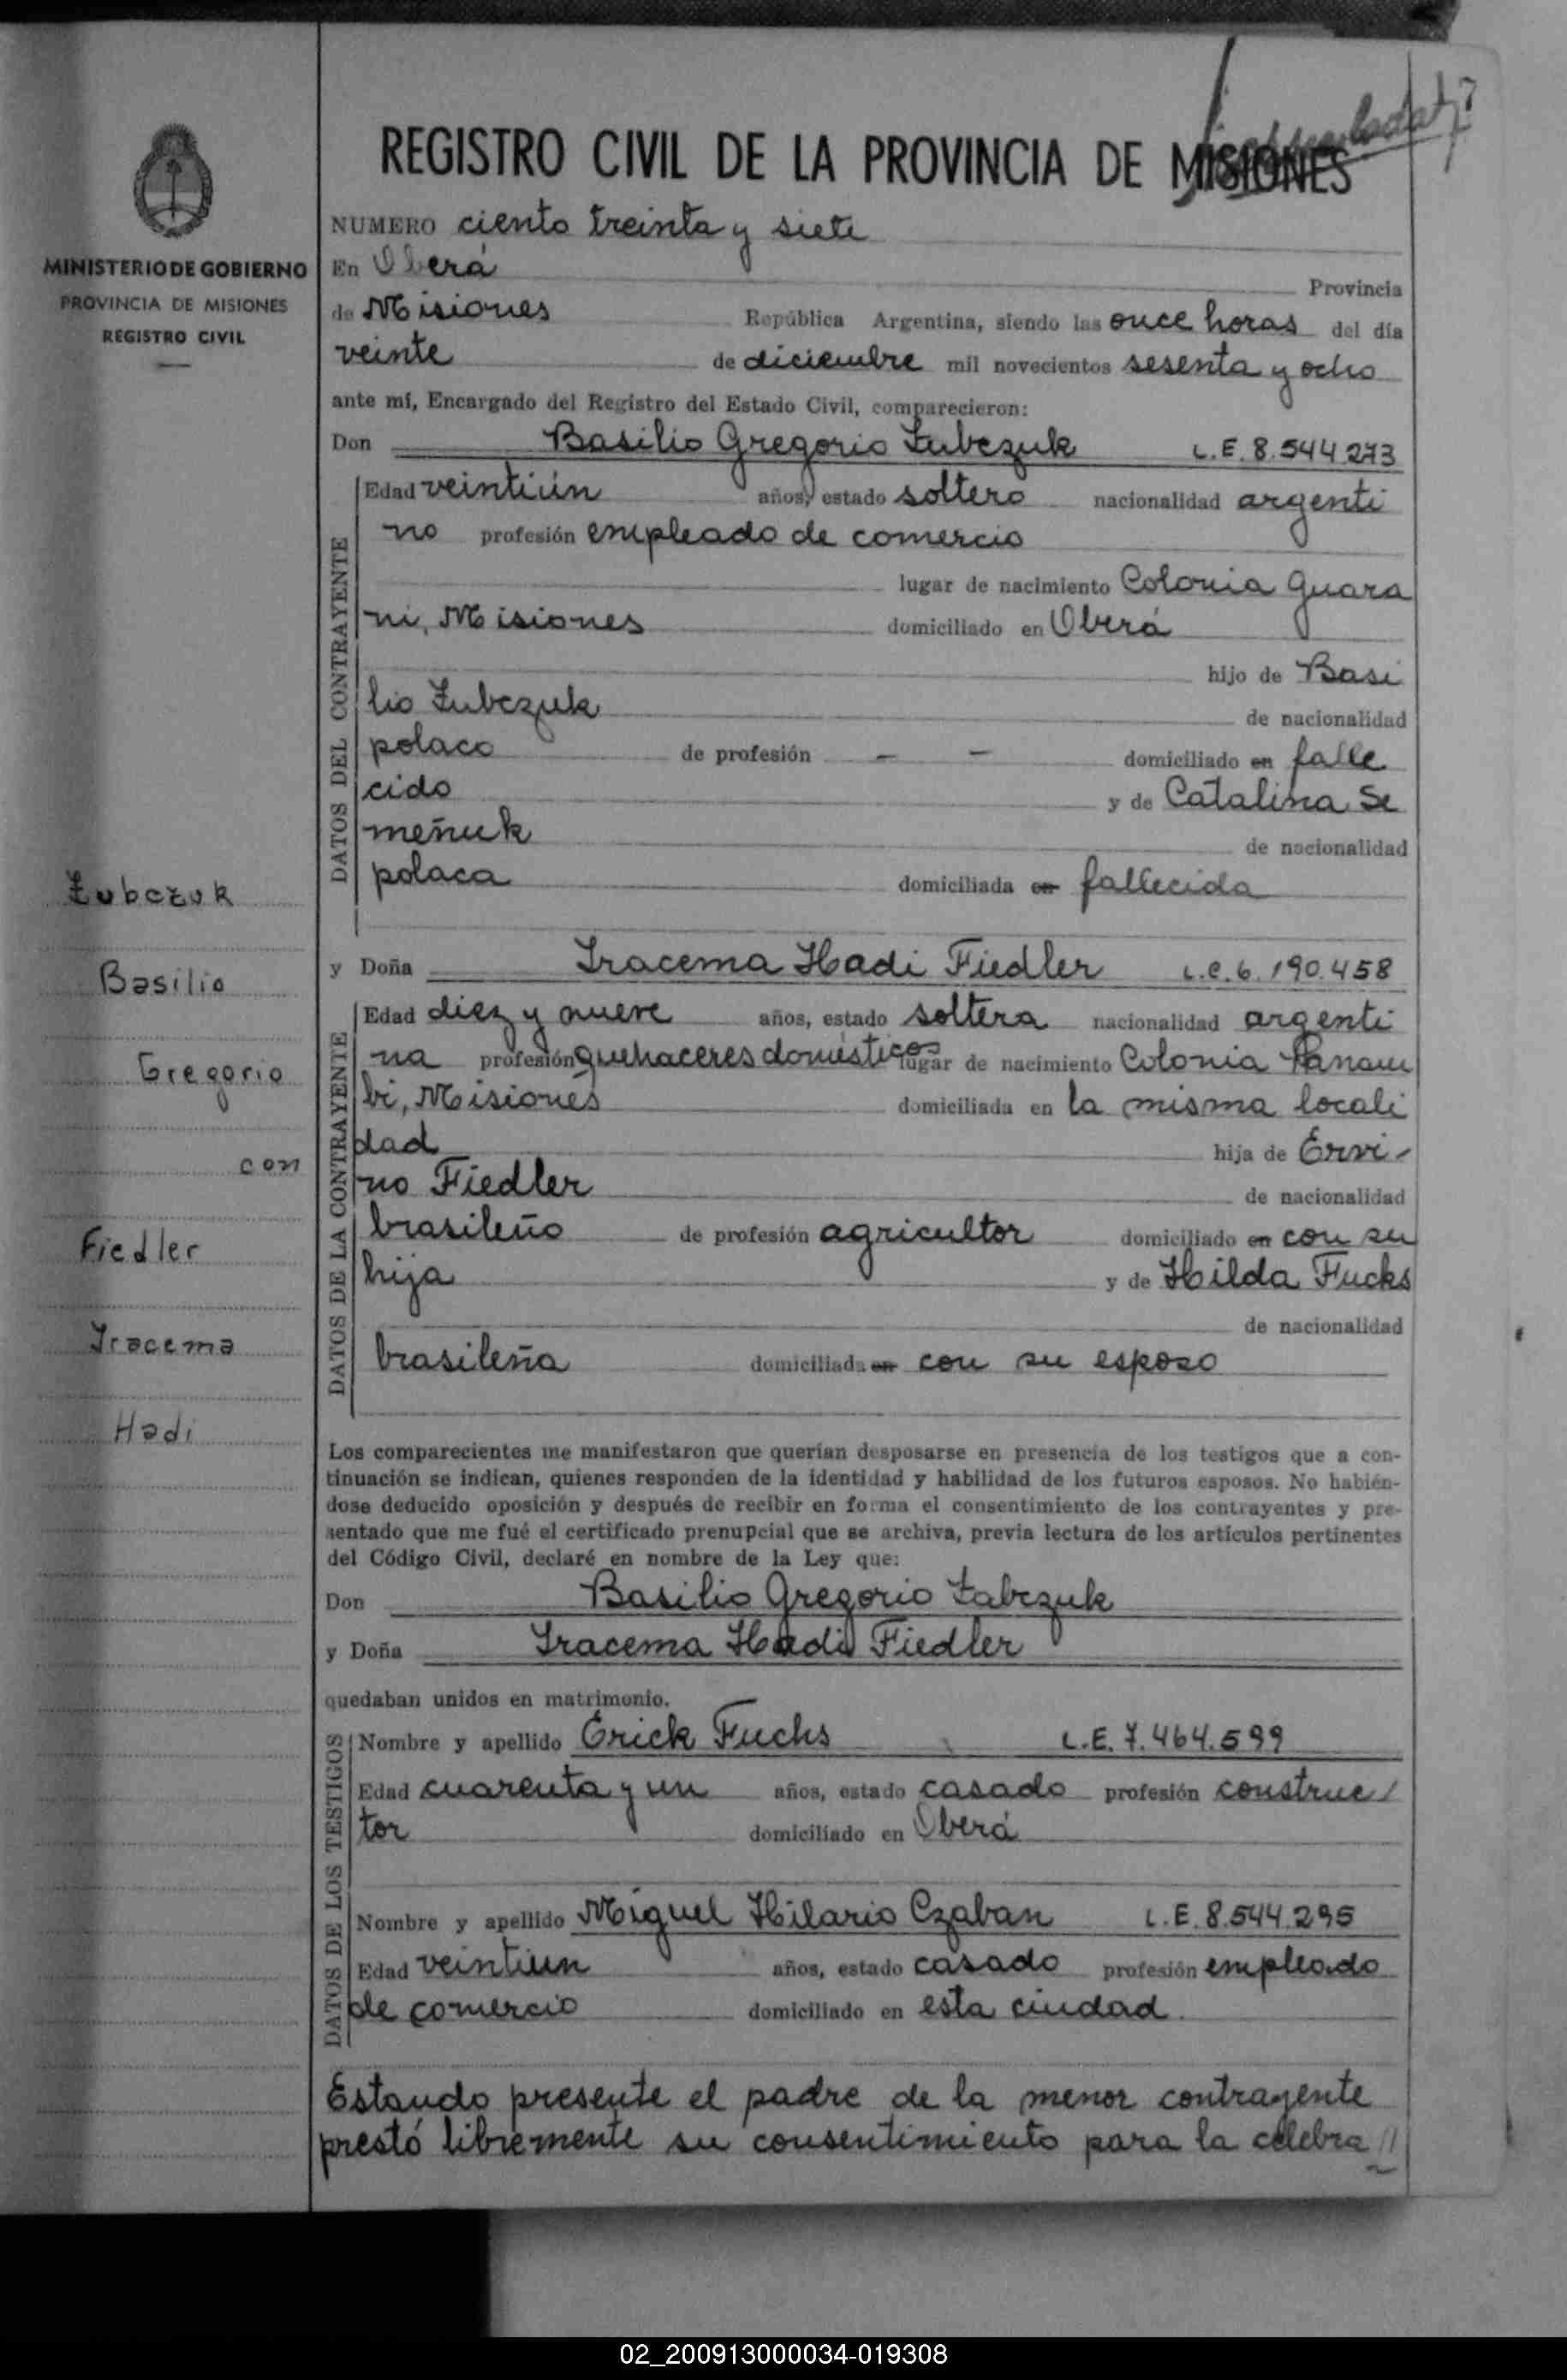 REGISTRO CIVIL DE LA PROVINCIA DE MISIONES
MINISTERIO DE GOBIERNO
PROVINCIA DE MISIONES
REGISTRO CIVIL
Żubczuk
Basilio
Gregorio
con
Fiedler
Iracema
Hadi
NUMERO ciento treinta y siete
En Oberá Provincia
de Misiones República Argentina, siendo las once horas del día
veinte de diciembre mil novecientos sesenta y ocho
ante mí, Encargado del Registro del Estado Civil, comparecieron:
Don Basilio Gregorio Żubczuk L.E. 8.544.273
DATOS DEL CONTRAYENTE
Edad veintiún años, estado soltero nacionalidad argenti
no profesión empleado de comercio
lugar de nacimiento Colonia Guara
ni, Misiones domiciliado en Oberá
hijo de Basi
lio Żubczuk de nacionalidad
polaco de profesión — — domiciliado en falle
cido y de Catalina Se
meñuk de nacionalidad
polaca domiciliada en fallecida
y Doña Iracema Hadi Fiedler L.C. 6.190.458
DATOS DE LA CONTRAYENTE
Edad diez y nueve años, estado soltera nacionalidad argenti
na profesión quehaceres domésticos lugar de nacimiento Colonia Panam
bi, Misiones domiciliada en la misma locali
dad hija de Ervi-
no Fiedler de nacionalidad
brasileño de profesión agricultor domiciliado en con su
hija y de Hilda Fucks
de nacionalidad
brasileña domiciliada en con su esposo
Los comparecientes me manifestaron que querían desposarse en presencia de los testigos que a con-
tinuación se indican, quienes responden de la identidad y habilidad de los futuros esposos. No habién-
dose deducido oposición y después de recibir en forma el consentimiento de los contrayentes y pre-
sentado que me fué el certificado prenupcial que se archiva, previa lectura de los artículos pertinentes
del Código Civil, declaré en nombre de la Ley que:
Don Basilio Gregorio Żabczuk
y Doña Iracema Hadi Fiedler
quedaban unidos en matrimonio.
DATOS DE LOS TESTIGOS
Nombre y apellido Erick Fuchs L.E. 7.464.599
Edad cuarenta y un años, estado casado profesión construc/
tor domiciliado en Oberá
Nombre y apellido Miguel Hilario Czaban L.E. 8.544.295
Edad veintiun años, estado casado profesión empleado
de comercio domiciliado en esta ciudad.
Estando presente el padre de la menor contrayente
prestó libremente su consentimiento para la celebra//
02_200913000034-019308